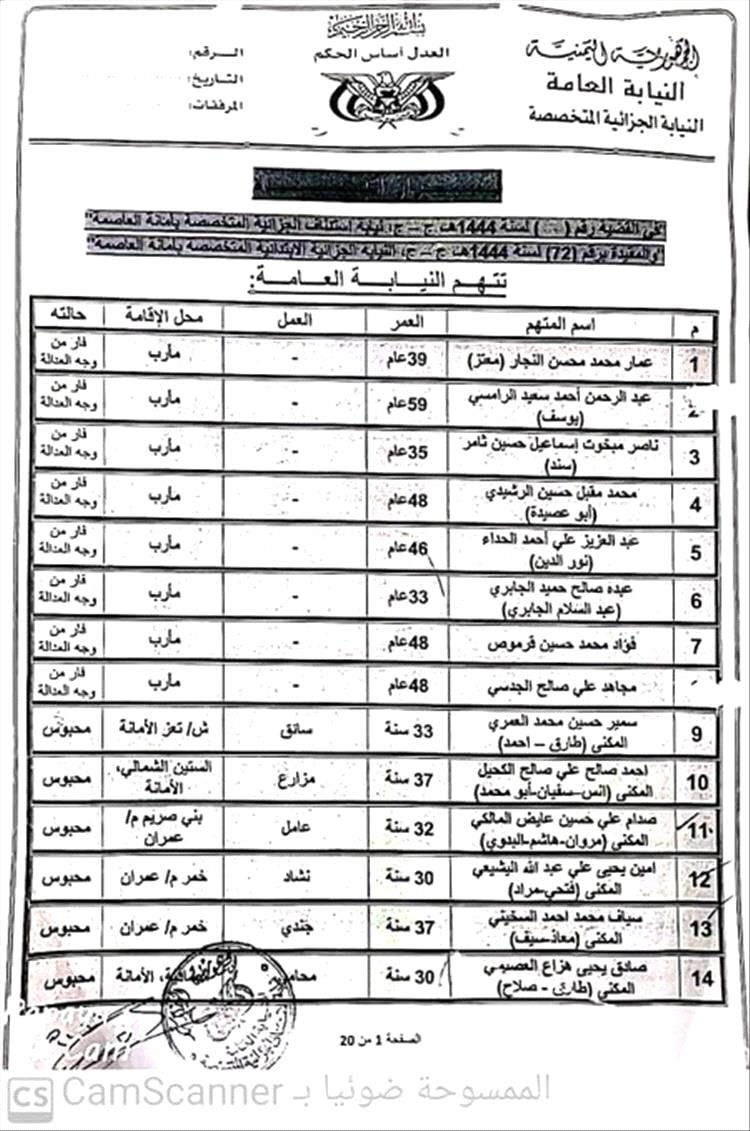 بسم الله الرحمن الرحيم
الجمهورية اليمنية
النيابة العامة
النيابة الجزائية المتخصصة
العدل أساس الحكم
الرقم:
التاريخ:
المرفقات:
في القضية رقم ( ) لسنة 1444هـ، ج – ج، نيابة استئناف الجزائية المتخصصة بأمانة العاصمة"
"والمقيدة برقم (72) لسنة 1444هـ، ج – ج، النيابة الجزائية الابتدائية المتخصصة بأمانة العاصمة"
تتهم النيابة العامة:
م اسم المتهم العمر العمل محل الإقامة حالته
1 عمار محمد محسن النجار (معتز) 39عام - مأرب فار من وجه العدالة
2 عبد الرحمن أحمد سعيد الرامسي (يوسف) 59عام - مأرب فار من وجه العدالة
3 ناصر مبخوت إسماعيل حسين ثامر (سند) 35عام - مأرب فار من وجه العدالة
4 محمد مقبل حسين الرشيدي (أبو عصيدة) 48عام - مأرب فار من وجه العدالة
5 عبد العزيز علي أحمد الحداء (نور الدين) 46عام - مأرب فار من وجه العدالة
6 عبده صالح حميد الجابري (عبد السلام الجابري) 33عام - مأرب فار من وجه العدالة
7 فؤاد محمد حسين قرموص 48عام - مأرب فار من وجه العدالة
مجاهد علي صالح الجدسي 48عام - مأرب فار من وجه العدالة
9 سمير حسين محمد العمري المكنى (طارق – احمد) 33 سنة سائق ش/ تعز الأمانة محبوس
10 احمد صالح علي صالح الكحيل المكنى (انس-سفيان-أبو محمد) 37 سنة مزارع الستين الشمالي، الأمانة محبوس
11 صدام علي حسين عايض المالكي المكنى (مروان-هاشم-البدوي) 32 سنة عامل بني صريم م/ عمران محبوس
12 امين يحيى علي عبد الله اليشيعي المكنى (فتحي-مراد) 30 سنة نشاد خمر م/ عمران محبوس
13 سياف محمد احمد السخيني المكنى (معاذ-سيف) 37 سنة جندي خمر م/ عمران محبوس
14 صادق يحيى هزاع العصيمي المكنى (طارق - صلاح) 30 سنة محامي الأمانة محبوس
الصفحة 1 من 20
CS CamScanner الممسوحة ضوئيا بـ